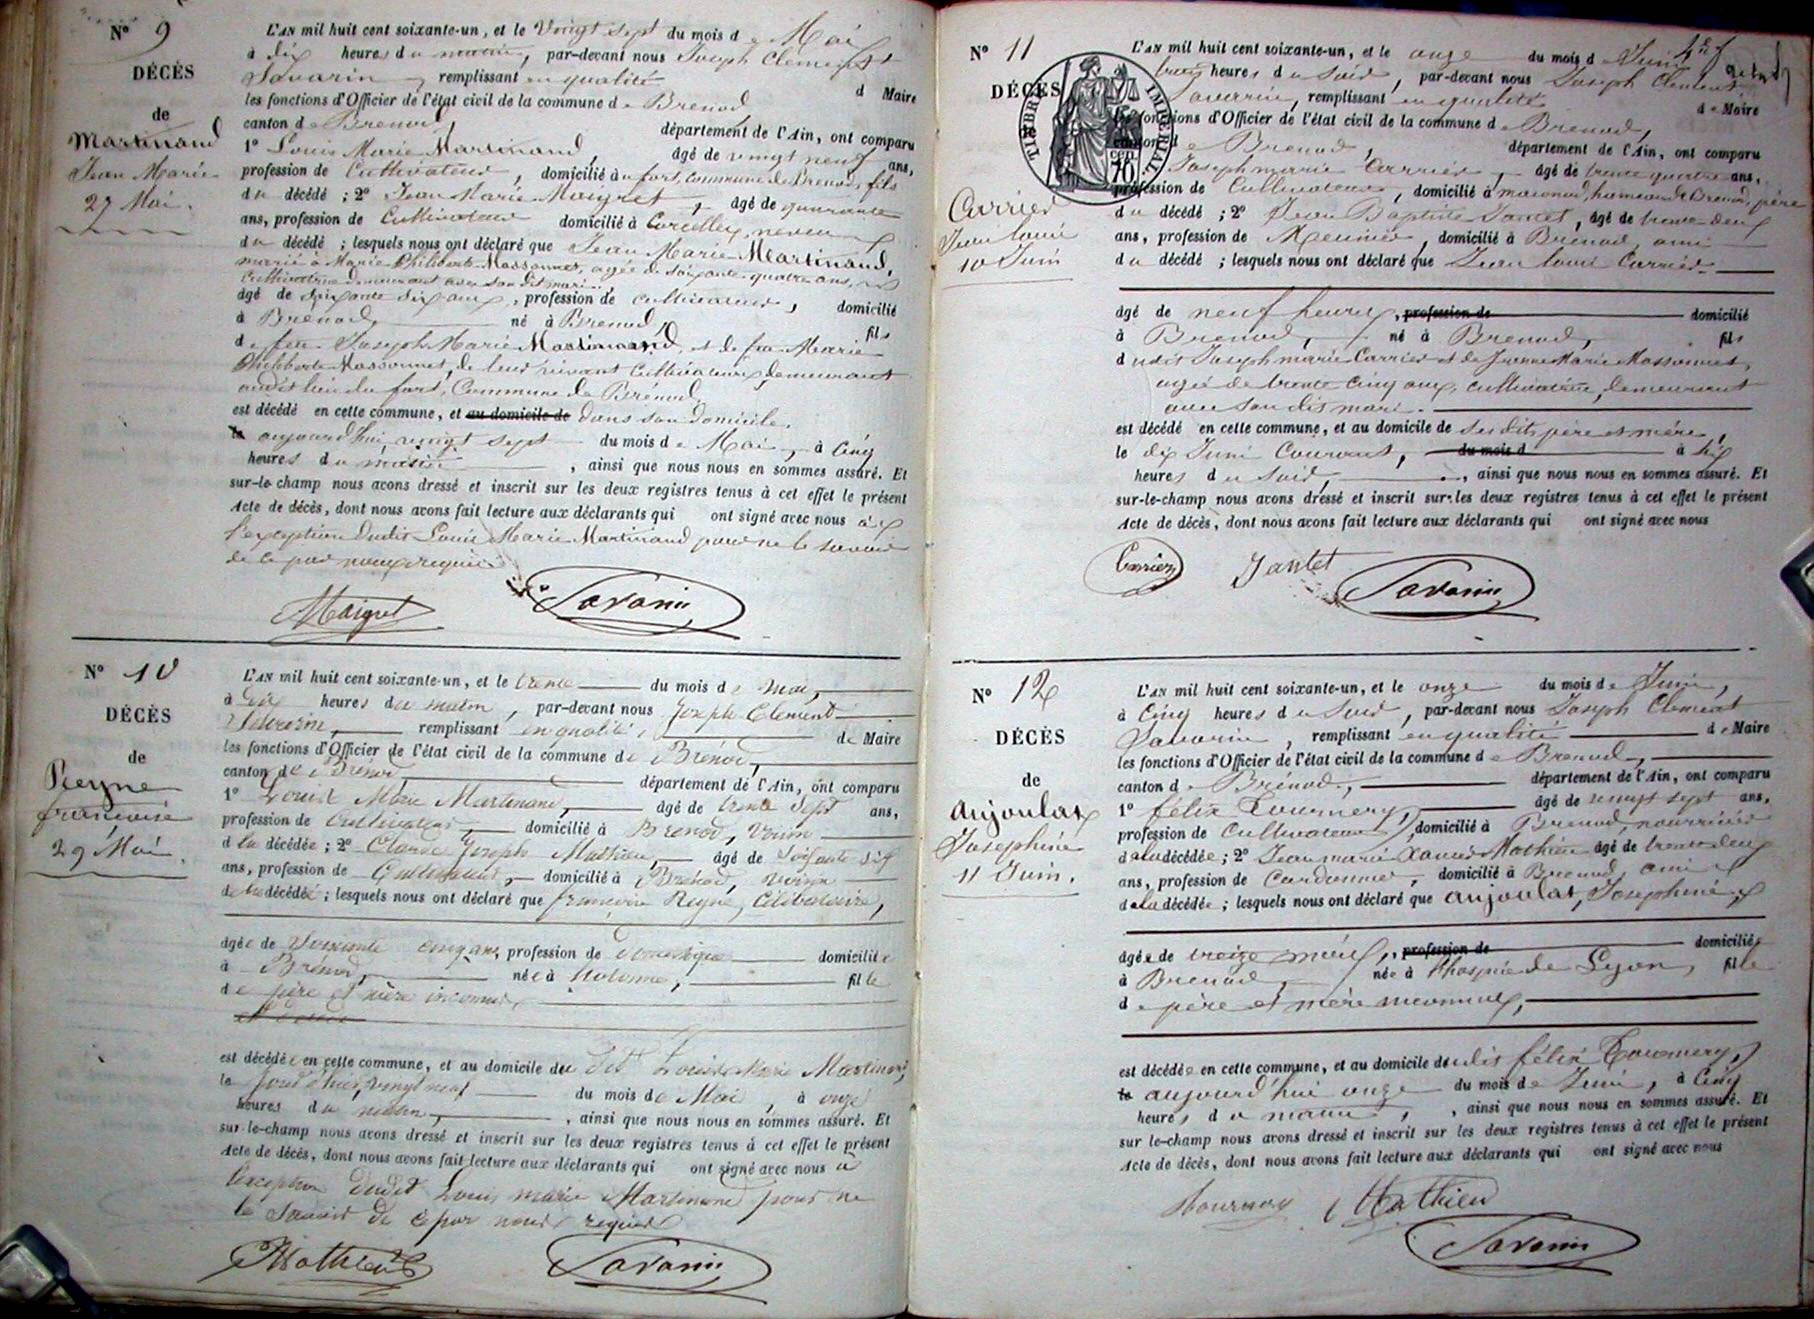 N° 9
DÉCÈS
de
Martinand
Jean Marie
27 Mai.
L'AN mil huit cent soixante-un, et le vingt sept du mois de Mai
à dix heures du matin, par-devant nous Joseph Clement
Savarin, remplissant en qualité
d Maire
les fonctions d'Officier de l'état civil de la commune de Brenod
canton de Brenod, département de l'Ain, ont comparu
1° Louis Marie Martinand, âgé de vingt neuf ans,
profession de Cultivateur, domicilié au fort, commune de Brenod, fils
du décédé ; 2° Jean Marie Maigret, âgé de quarante
ans, profession de Cultivateur domicilié à Corcelles, neveu
du décédé ; lesquels nous ont déclaré que Jean Marie Martinand,
marié à Marie Philiberte Massonnet, agée de soixante quatre ans,
Cultivatrice demeurant avec son dit mari.
âgé de soixante dix ans, profession de cultivateur, domicilié
à Brénod, né à Brenod, fils
de feu Joseph Marie Martinand, et de feu Marie
Philiberte Massonnet, de leur vivant Cultivateurs, demeurant
audit lieu du fort, Commune de Brénod.
est décédé en cette commune, et au domicile de dans son domicile.
le aujourd'hui vingt sept du mois de Mai, à cinq
heures du matin, ainsi que nous nous en sommes assuré. Et
sur-le-champ nous avons dressé et inscrit sur les deux registres tenus à cet effet le présent
Acte de décès, dont nous avons fait lecture aux déclarants qui ont signé avec nous à
l'exception dudit Louis Marie Martinand pour ne le savoir
de ce par nous requis
Maigret Savarin
N° 10
DÉCÈS
de
Reyne
françoise
29 Mai.
L'AN mil huit cent soixante-un, et le trente du mois de Mai,
à dix heures du matin, par-devant nous Joseph Clement
Savarin, remplissant en qualité, de Maire
les fonctions d'Officier de l'état civil de la commune de Brénod,
canton de Brénod, département de l'Ain, ont comparu
1° Louis Marie Martinand, âgé de trente sept ans,
profession de Cultivateur, domicilié à Brenod, voisin
de la décédée ; 2° Claude Joseph Mathieu, âgé de soixante six
ans, profession de Cultivateur, domicilié à Brénod, voisin
de la décédée ; lesquels nous ont déclaré que françoise Reyne, Célibataire,
âgée de Soixante cinq ans, profession de domestique domiciliée
à Brénod, née à, fille
de père et mère inconnus,
est décédée en cette commune, et au domicile du dit Louis Marie Martinand,
le jour d'hier, vingt neuf du mois de Mai, à onze
heures du matin, ainsi que nous nous en sommes assuré. Et
sur-le-champ nous avons dressé et inscrit sur les deux registres tenus à cet effet le présent
Acte de décès, dont nous avons fait lecture aux déclarants qui ont signé avec nous à
l'exception dudit Louis marie Martinand pour ne
le savoir de ce par nous requis
Mathieu Savarin
N° 11
DÉCÈS
TIMBRE IMPÉRIAL
70 cen
Carrier
Jean louis
10 Juin
L'AN mil huit cent soixante-un, et le onze du mois de Juin
heures du soir, par-devant nous Joseph Clement
Savarin, remplissant en qualité de Maire
les fonctions d'Officier de l'état civil de la commune de Brenod,
canton de Brenod, département de l'Ain, ont comparu
Joseph marie Carrier, âgé de trente quatre ans,
profession de Cultivateur, domicilié à, hameau de Brenod, père
du décédé ; 2° Jean Baptiste Jantet, âgé de trente deux
ans, profession de Meunier, domicilié à Brenod, ami
du décédé ; lesquels nous ont déclaré que Jean louis Carrier
âgé de neuf heures, profession de domicilié
à Brenod, né à Brenod, fils
dudit Joseph marie Carrier et de Jeanne Marie Massonnet,
agée de trente cinq ans, cultivatrice, demeurant
avec son dit mari.
est décédé en cette commune, et au domicile de ses dits père et mère,
le dix Juin Courant, du mois d à six
heures du soir, ainsi que nous nous en sommes assuré. Et
sur-le-champ nous avons dressé et inscrit sur les deux registres tenus à cet effet le présent
Acte de décès, dont nous avons fait lecture aux déclarants qui ont signé avec nous
Carrier Jantet Savarin
N° 12
DÉCÈS
de
Anjoulat
Josephine
11 Juin.
L'AN mil huit cent soixante-un, et le onze du mois de Juin,
à Cinq heures du Soir, par-devant nous Joseph Clement
Savarin, remplissant en qualité de Maire
les fonctions d'Officier de l'état civil de la commune de Brenod,
canton de Brénod, département de l'Ain, ont comparu
1° félix Tournery, âgé de vingt sept ans,
profession de Cultivateur, domicilié à Brenod, nourricier
de la décédée ; 2° Jean marie Xavier Mathieu âgé de trente deux
ans, profession de Cordonnier, domicilié à Brenod, ami
de la décédée ; lesquels nous ont déclaré que anjoulat, Josephine
âgée de treize mois, profession de domiciliée
à Brenod, née à l'hospice de Lyon, fille
de père et mère inconnus,
est décédée en cette commune, et au domicile dudit félix Tournery,
le aujourd'hui onze du mois de Juin, à Cinq
heures du matin, ainsi que nous nous en sommes assuré. Et
sur-le-champ nous avons dressé et inscrit sur les deux registres tenus à cet effet le présent
Acte de décès, dont nous avons fait lecture aux déclarants qui ont signé avec nous
Mathieu
Savarin